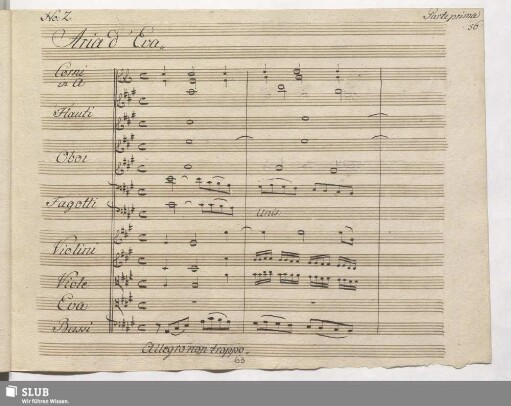 No. 2.
Parte prima
56
Aria d' Eva.
Corni
in A
Flauti
Oboi
Fagotti
unis
Violini
Viole
Eva
Bassi
Allegro non troppo.
63
SLUB
Wir führen Wissen.